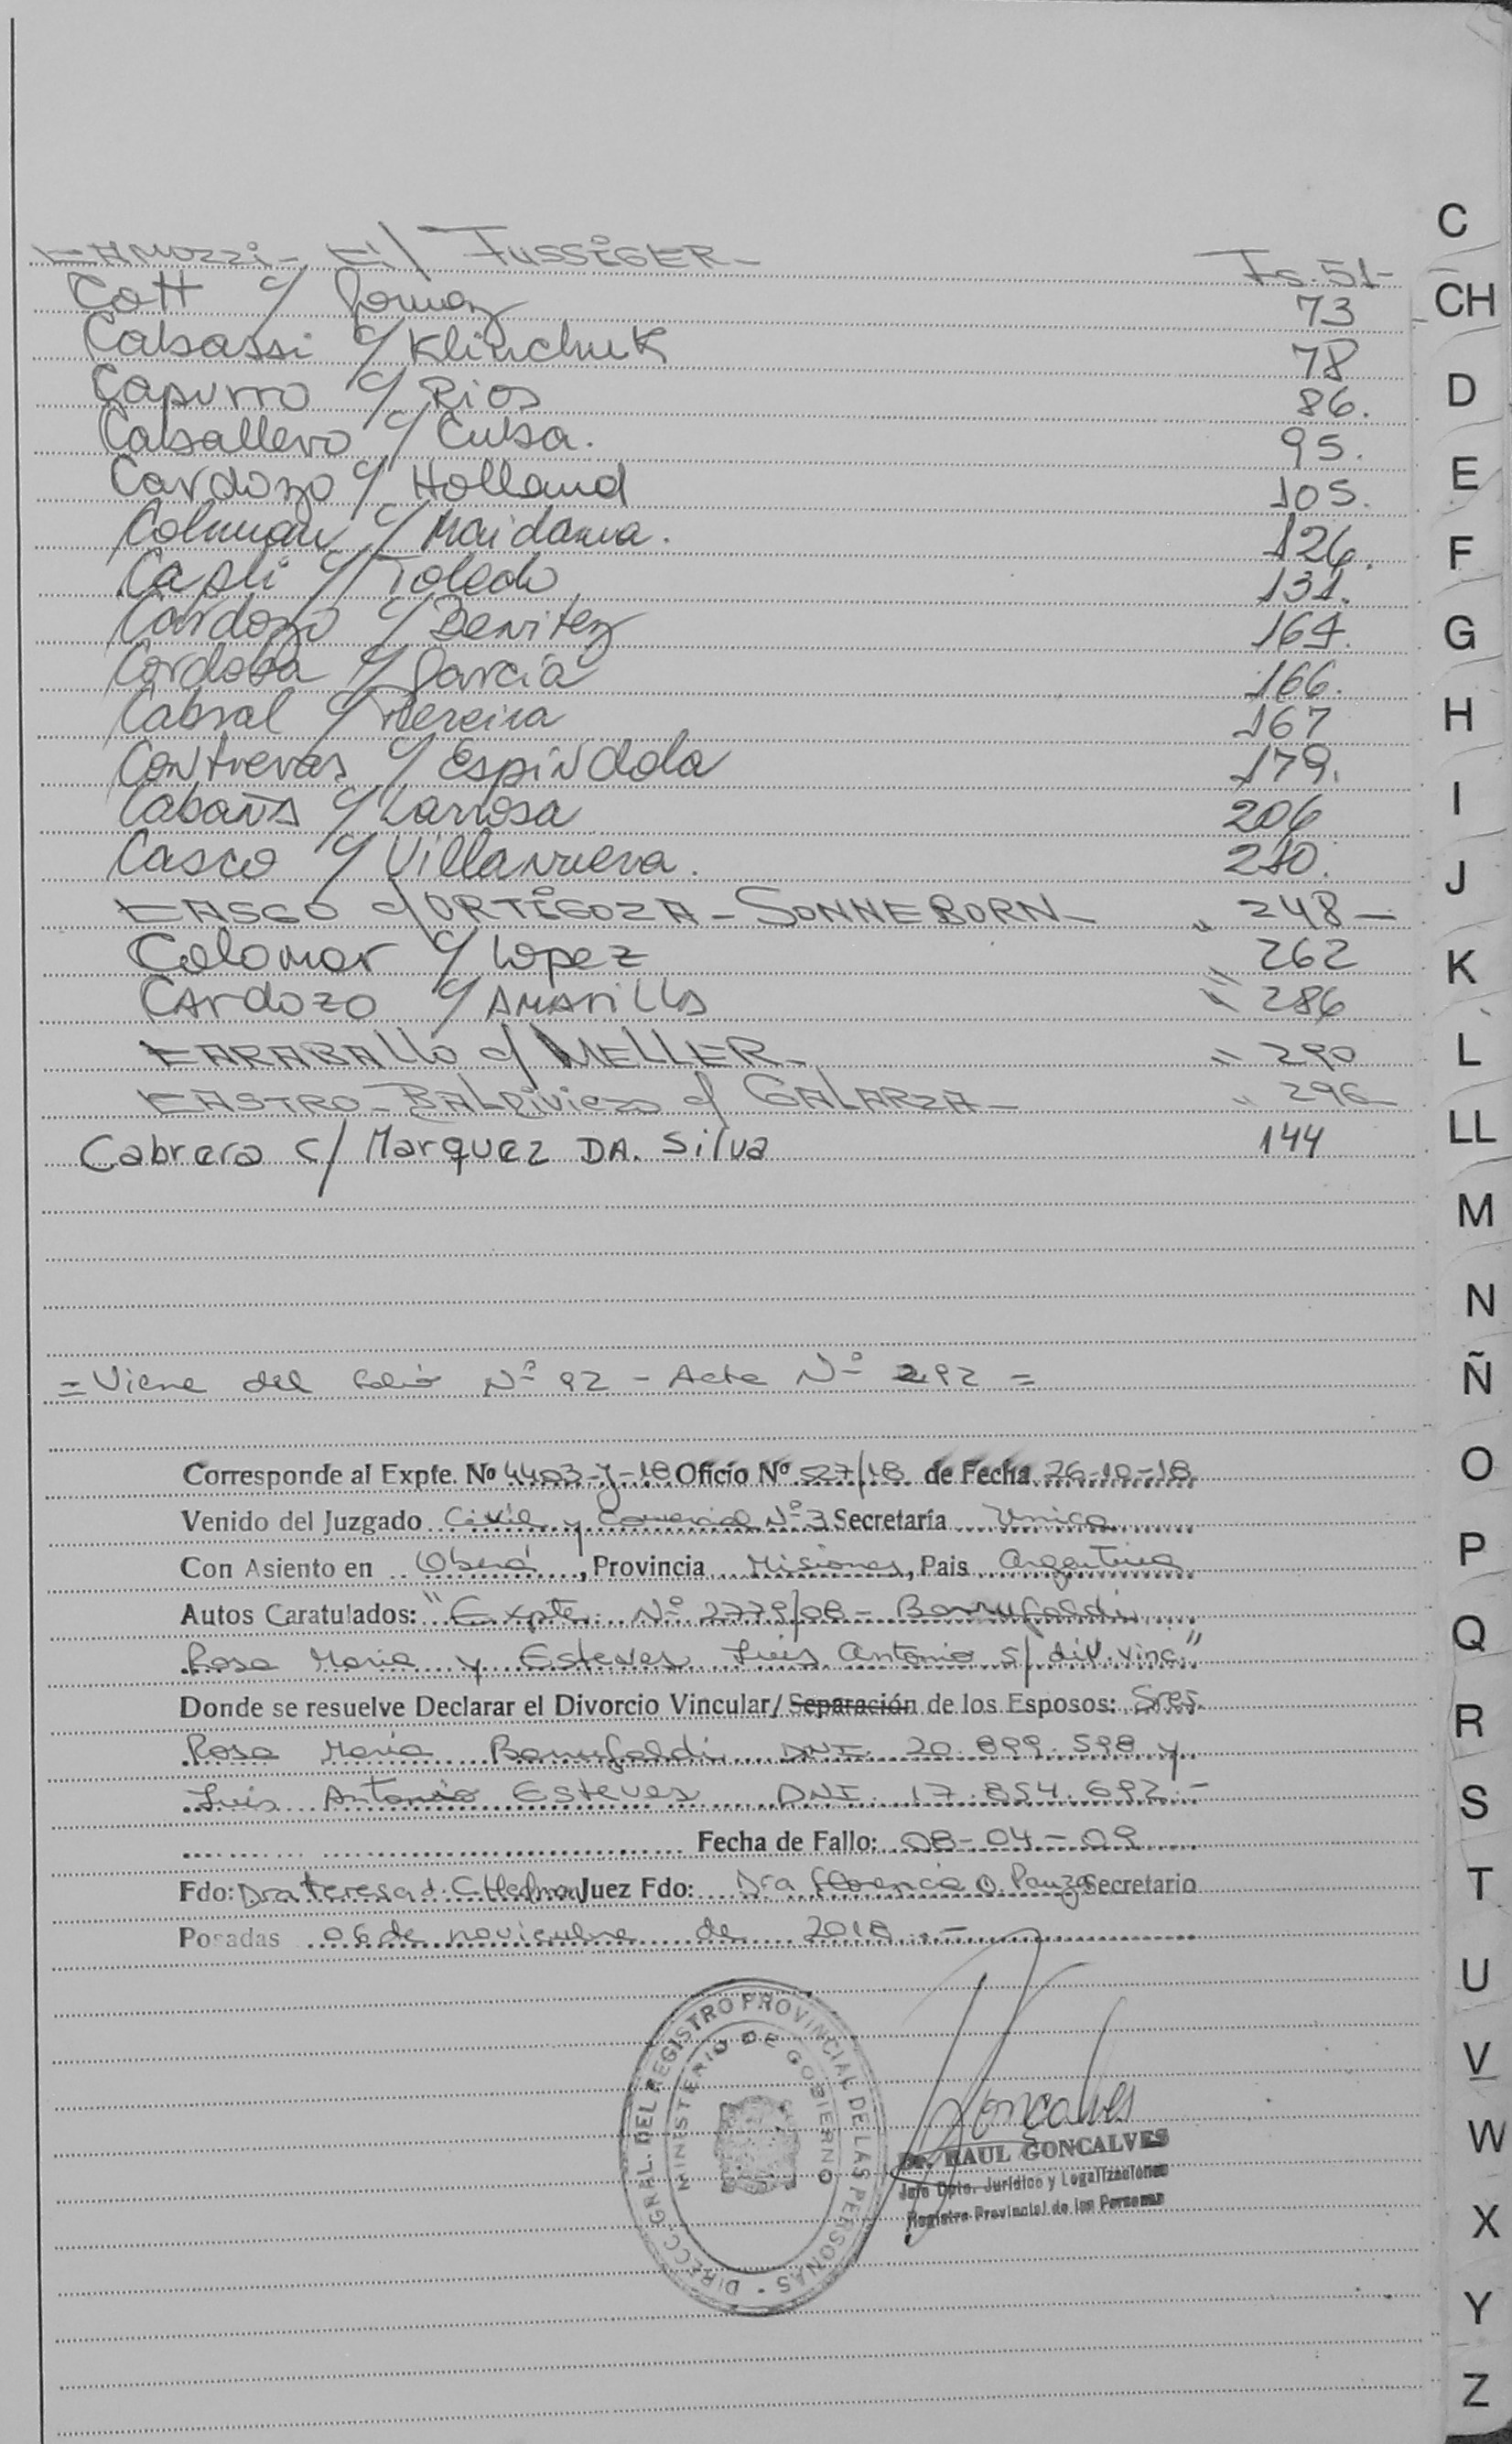 CAMOZZI - c/ FUSSIGER - Fs. 51 -
Cott c/ Gomez 73
Cabassi c/ Klinchuk 78
Capurro c/ Rios 86.
Caballero c/ Cubsa. 95.
Cardozo c/ Holland 105.
Colman c/ Maidana. 126.
Capli c/ Toledo 131.
Cardozo c/ Benitez 164.
Cordoba c/ Garcia 166.
Cabral c/ Pereira 167
Contreras c/ Espindola 179.
Cabañas c/ Larrosa 206
Casco c/ Villanueva. 210.
CASCO c/ ORTIGOZA - SONNEBORN - " 248 -
Colomar c/ Lopez " 262
CArdozo c/ AMArillo " 286
CARABALLO c/ MELLER - " 290
CASTRO - BALDiviezo c/ GALARZA - " 296 -
Cabrera c/ Marquez DA. Silva 144
= Viene del folio Nº 92 - Acta Nº 292 =
Corresponde al Expte. Nº 4403-J-18 Oficio Nº 527/18 de Fecha 26-10-18
Venido del Juzgado Civil y Comercial Nº 3 Secretaría Unica
Con Asiento en Oberá, Provincia Misiones, Pais Argentina
Autos Caratulados: "Expte. Nº 2779/08 - Barrufaldi
Rosa Maria y Esteves Luis Antonio s/ div. vinc."
Donde se resuelve Declarar el Divorcio Vincular/ Separación de los Esposos: Sres.
Rosa Maria Barrufaldi DNI. 20.899.598 y
Luis Antonio Esteves DNI. 17.854.692.-
Fecha de Fallo: 08-04-09
Fdo: Dra Teresa J. Juez Fdo: Dra Florencia O. Panza Secretario
Posadas 06 de noviembre de 2018.-
DIRECC. GRAL. DEL REGISTRO PROVINCIAL DE LAS PERSONAS -
MINISTERIO DE GOBIERNO
Goncalves
Dr. RAUL GONCALVES
Jefe Dpto. Jurídico y Legalizaciones
Registro Provincial de las Personas
C
CH
D
E
F
G
H
I
J
K
L
LL
M
N
Ñ
O
P
Q
R
S
T
U
V
W
X
Y
Z